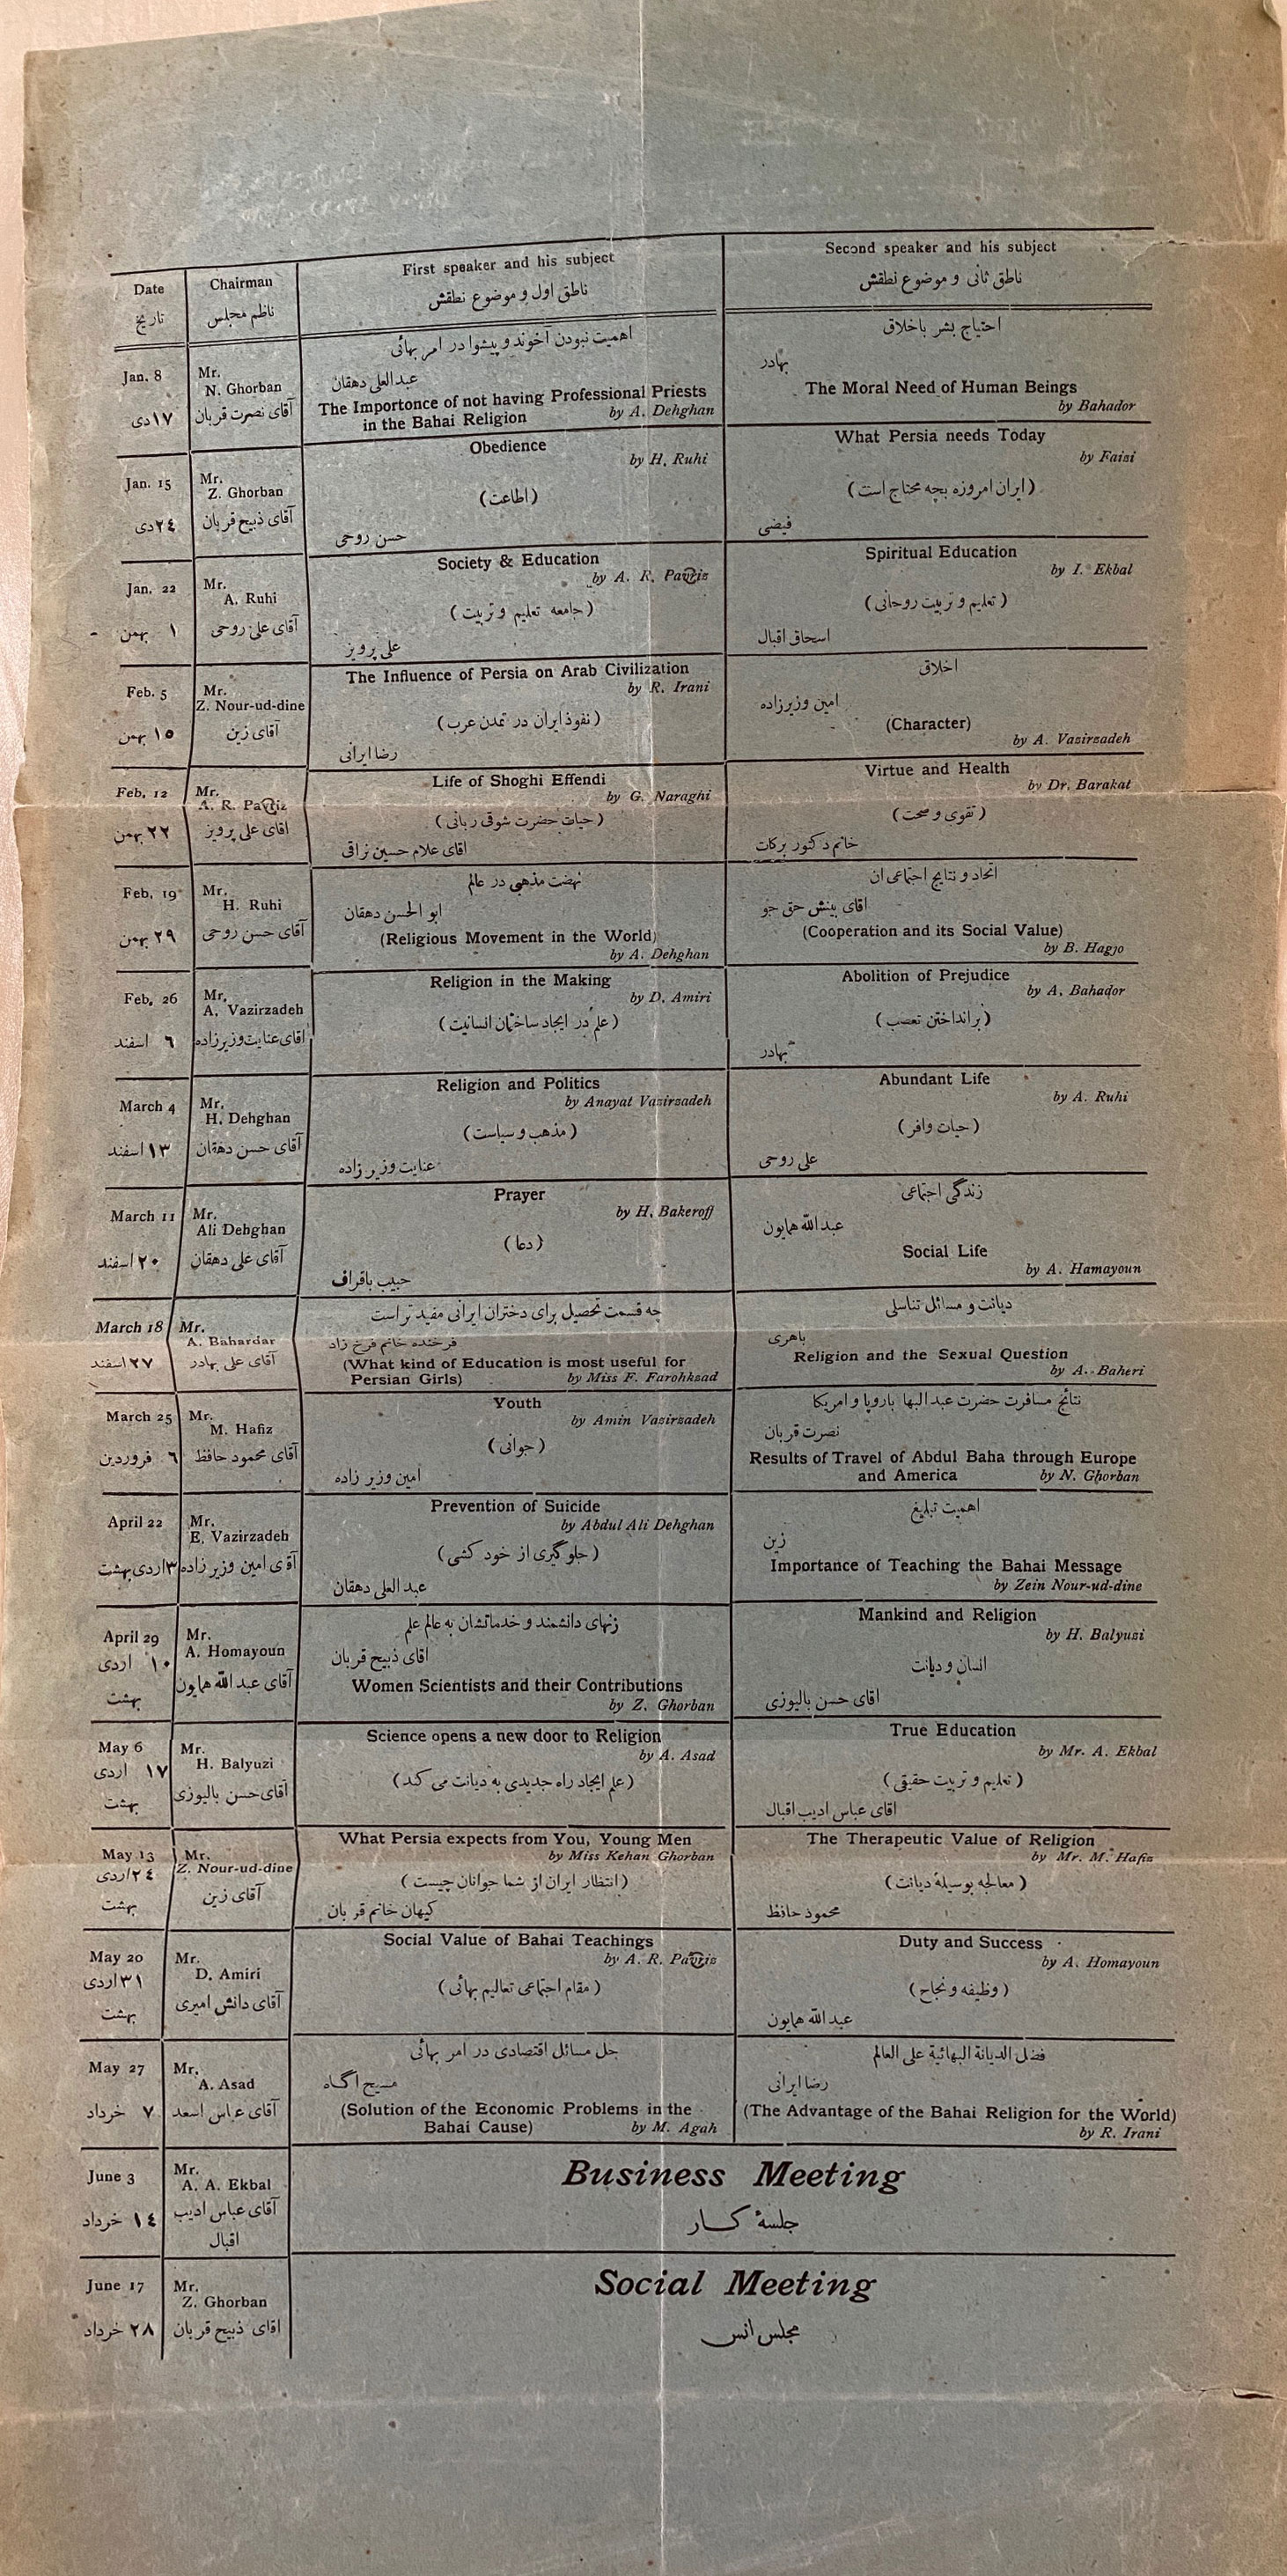 Date
تاریخ
Chairman
ناظم مجلس
First speaker and his subject
ناطق اول و موضوع نطقش
Second speaker and his subject
ناطق ثانی و موضوع نطقش
Jan. 8
١٧ دی
Mr.
N. Ghorban
آقای نصرت قربان
اهمیت نبودن آخوند و پیشوا در امر بهائی
عبد العلی دهقان
The Importonce of not having Professional Priests
in the Bahai Religion by A. Dehghan
احتیاج بشر باخلاق
بهادر
The Moral Need of Human Beings
by Bahador
Jan. 15
٢٤ دی
Mr.
Z. Ghorban
آقای ذبیح قربان
Obedience
by H. Ruhi
(اطاعت)
حسن روحی
What Persia needs Today
by Faizi
(ایران امروزه بچه محتاج است)
فیضی
Jan. 22
١ بهمن
Mr.
A. Ruhi
آقای علی روحی
Society & Education
by A. R.
(جامعه تعلیم و تربیت)
علی پرویز
Spiritual Education
by I. Ekbal
(تعلیم و تربیت روحانی)
اسحاق اقبال
Feb. 5
١٥ بهمن
Mr.
Z. Nour-ud-dine
آقای زین
The Influence of Persia on Arab Civilization
by R. Irani
(نفوذ ایران در تمدن عرب)
رضا ایرانی
اخلاق
امین وزیرزاده
(Character)
by A. Vazirzadeh
Feb. 12
٢٢ بهمن
Mr.
A. R.
اقای علی پرویز
Life of Shoghi Effendi
by G. Naraghi
(حیات حضرت شوقی ربانی)
اقای غلام حسین نراقی
Virtue and Health
by Dr. Barakat
(تقوی و صحت)
خانم دکتور برکات
Feb. 19
٢٩ بهمن
Mr.
H. Ruhi
آقای حسن روحی
نهضت مذهبی در عالم
ابو الحسن دهقان
(Religious Movement in the World)
by A. Dehghan
اتحاد و نتایج اجتماعی ان
اقای بینش حق جو
(Cooperation and its Social Value)
by B. Hagjo
Feb. 26
٦ اسفند
Mr.
A. Vazirzadeh
اقای عنایت وزیرزاده
Religion in the Making
by D. Amiri
(علم در ایجاد ساختمان انسانیت)
Abolition of Prejudice
by A. Bahador
(برانداختن تعصب)
بهادر
March 4
١٣ اسفند
Mr.
H. Dehghan
آقای حسن دهقان
Religion and Politics
by Anayat Vazirzadeh
(مذهب و سیاست)
عنایت وزیر زاده
Abundant Life
by A. Ruhi
(حیات وافر)
علی روحی
March 11
٢٠ اسفند
Mr.
Ali Dehghan
آقای علی دهقان
Prayer
by H. Bakeroff
(دعا)
حبیب باقراف
زندگی اجتماعی
عبد الله همایون
Social Life
by A. Hamayoun
March 18
٢٧ اسفند
Mr.
A. Bahardar
آقای علی بهادر
چه قسمت تحصیل برای دختران ایرانی مفید تر است
فرخنده خانم فرخ زاد
(What kind of Education is most useful for
Persian Girls) by Miss F. Farohkzad
دیانت و مسائل تناسلی
باهری
Religion and the Sexual Question
by A. Baheri
March 25
٦ فروردین
Mr.
M. Hafiz
آقای محمود حافظ
Youth
by Amin Vazirzadeh
(جوانی)
امین وزیر زاده
نتائج مسافرت حضرت عبد البها باروپا و امریکا
نصرت قربان
Results of Travel of Abdul Baha through Europe
and America by N. Ghorban
April 22
٣ اردی بهشت
Mr.
E. Vazirzadeh
آقای امین وزیر زاده
Prevention of Suicide
by Abdul Ali Dehghan
(جلو گیری از خود کشی)
عبد العلی دهقان
اهمیت تبلیغ
زین
Importance of Teaching the Bahai Message
by Zein Nour-ud-dine
April 29
١٠ اردی
بهشت
Mr.
A. Homayoun
آقای عبد الله همایون
زنهای دانشمند و خدماتشان به عالم علم
اقای ذبیح قربان
Women Scientists and their Contributions
by Z. Ghorban
Mankind and Religion
by H. Balyuzi
انسان و دیانت
اقای حسن بالیوزی
May 6
١٧ اردی
بهشت
Mr.
H. Balyuzi
آقای حسن بالیوزی
Science opens a new door to Religion
by A. Asad
(علم ایجاد راه جدیدی به دیانت می کند)
True Education
by Mr. A. Ekbal
(تعلیم و تربیت حقیقی)
اقای عباس ادیب اقبال
May 13
٢٤ اردی
بهشت
Mr.
Z. Nour-ud-dine
آقای زین
What Persia expects from You, Young Men
by Miss Kehan Ghorban
(انتظار ایران از شما جوانان چیست)
کیهان خانم قربان
The Therapeutic Value of Religion
by Mr. M. Hafiz
(معالجه بوسیلۀ دیانت)
محمود حافظ
May 20
٣١ اردی
بهشت
Mr.
D. Amiri
آقای دانش امیری
Social Value of Bahai Teachings
by A. R.
(مقام اجتماعی تعالیم بهائی)
Duty and Success
by A. Homayoun
(وظیفه و نجاح)
عبد الله همایون
May 27
٧ خرداد
Mr.
A. Asad
آقای عباس اسعد
حل مسائل اقتصادی در امر بهائی
مسیح اگاه
(Solution of the Economic Problems in the
Bahai Cause) by M. Agah
فضل الدیانة البهائیة علی العالم
رضا ایرانی
(The Advantage of the Bahai Religion for the World)
by R. Irani
June 3
١٤ خرداد
Mr.
A. A. Ekbal
آقای عباس ادیب
اقبال
Business Meeting
جلسۀ کار
June 17
٢٨ خرداد
Mr.
Z. Ghorban
اقای ذبیح قربان
Social Meeting
مجلس انس